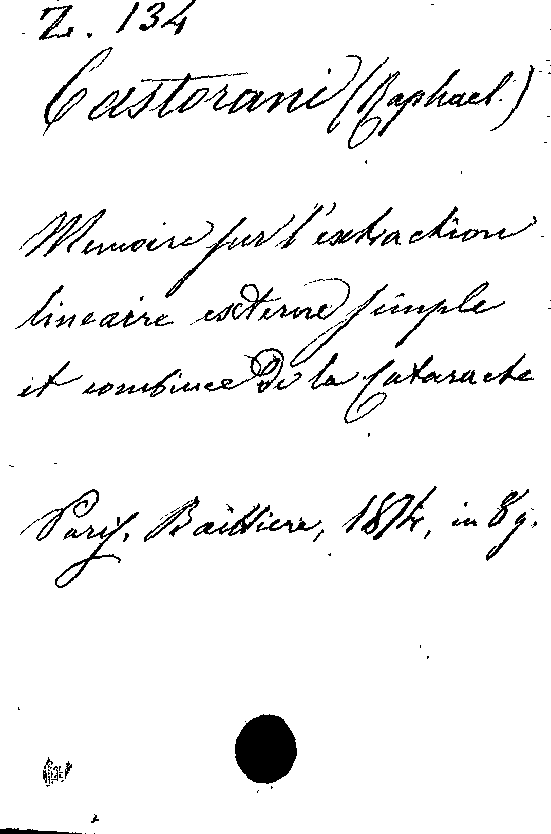 Z. 134
Castorani (Raphael.)
Memoire sur l'extraction
lineaire externe simple
et combinee De la Cataracte
Paris. Baillière, 1874, in 8 g.